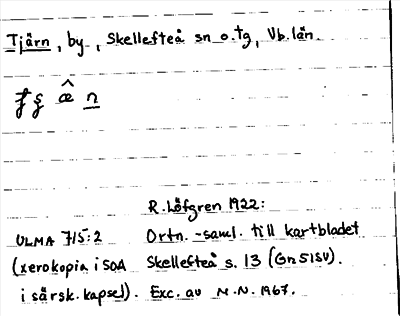 Tjärn, by, Skellefteå sn o. tg, Vb. län.
æ̂ n
R. Löfgren 1922:
ULMA 715:2 Ortn.-saml. till kartbladet
(xerokopia i SOA Skellefteå s. 13 (Gn 51SV).
i särsk. kapsel). Exc. av M.N. 1967.